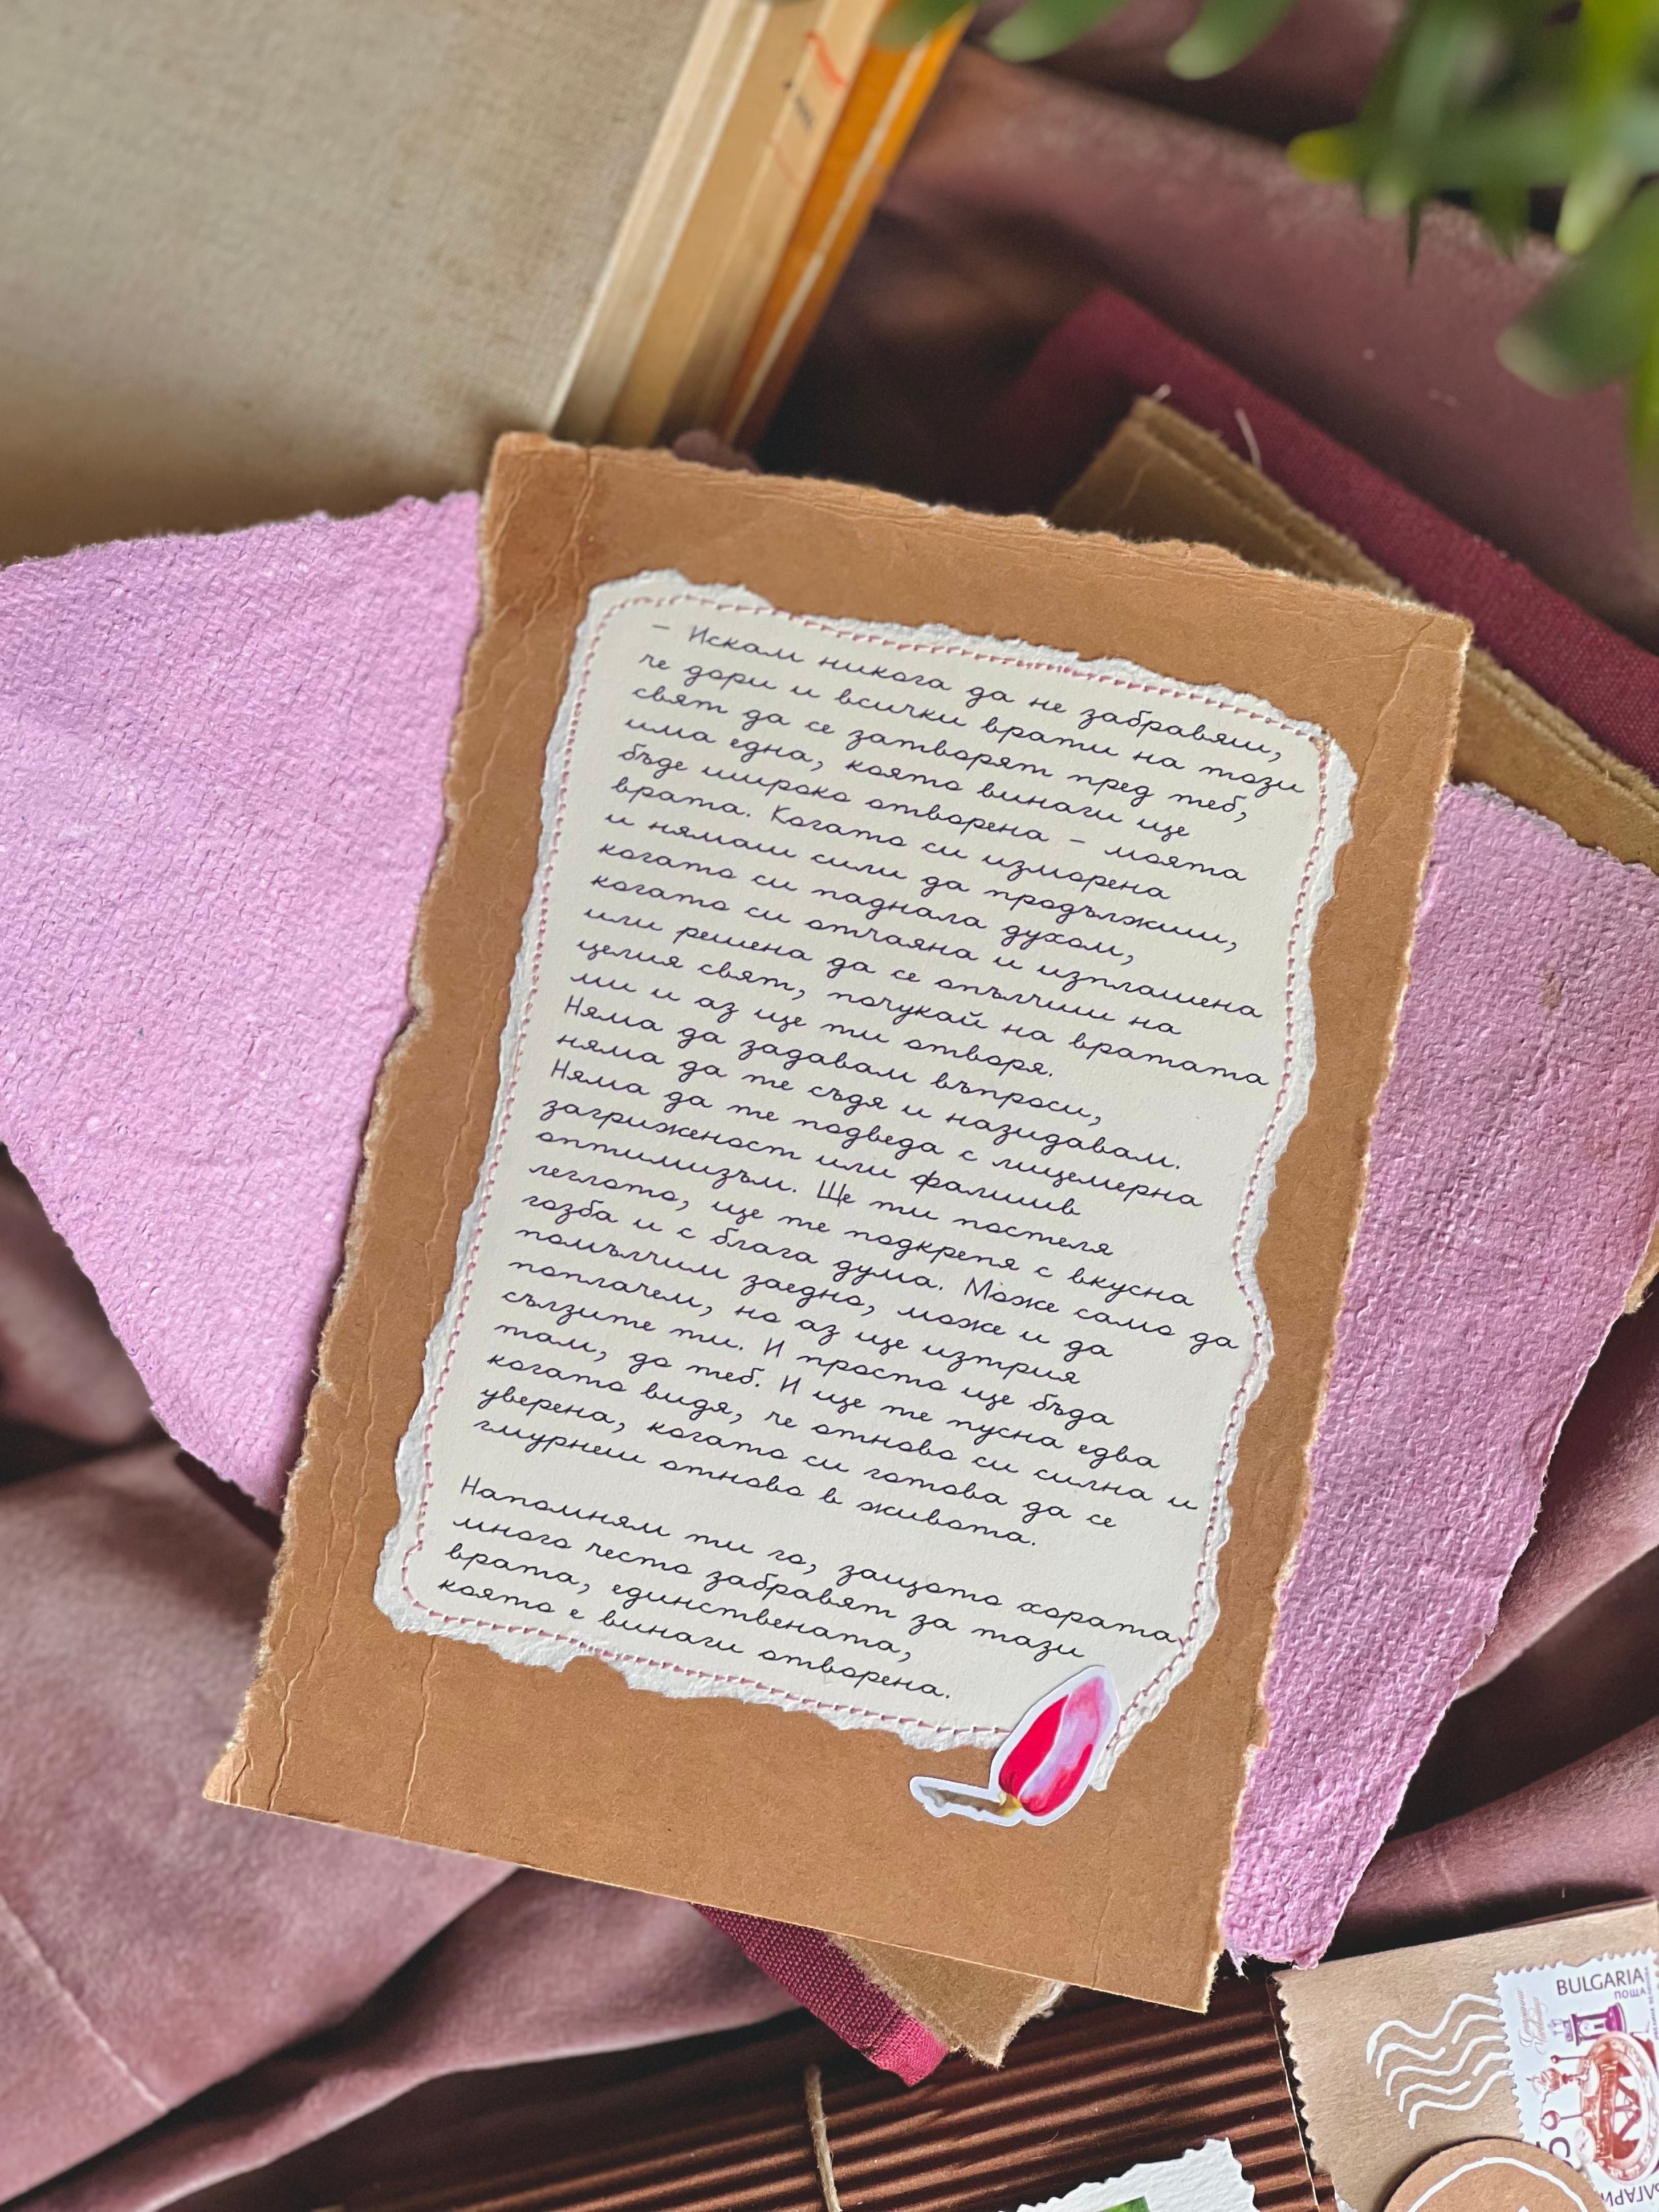 – Искам никога да не забравяш,
че дори и всички врати на този
свят да се затворят пред теб,
има една, която винаги ще
бъде широко отворена – моята
врата. Когато си изморена
и нямаш сили да продължиш,
когато си паднала духом,
когато си отчаяна и изплашена
или решена да се опълчиш на
целия свят, почукай на вратата
ми и аз ще ти отворя.
Няма да задавам въпроси,
няма да те съдя и назидавам.
Няма да те подведа с лицемерна
загриженост или фалшив
оптимизъм. Ще ти постеля
леглото, ще те подкрепя с вкусна
гозба и с блага дума. Може само да
помълчим заедно, може и да
поплачем, но аз ще изтрия
сълзите ти. И просто ще бъда
там, до теб. И ще те пусна едва
когато видя, че отново си силна и
уверена, когато си готова да се
гмурнеш отново в живота.
Напомням ти го, защото хората
много често забравят за тази
врата, единствената,
която е винаги отворена.
BULGARIA
ПОЩА